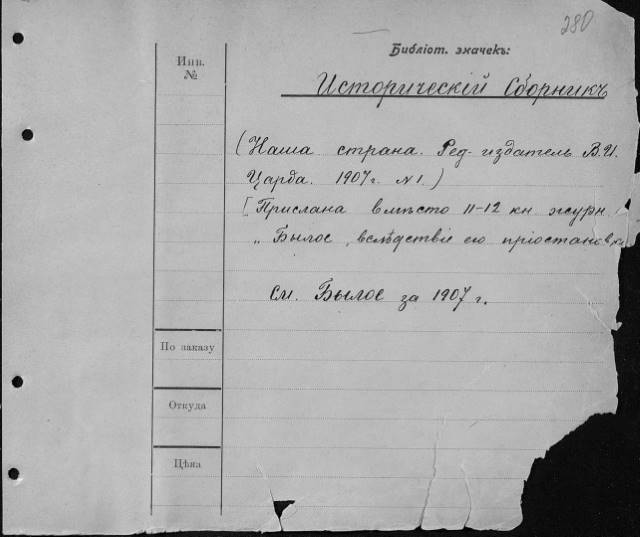 280
Библіот. значекъ:
Инв.
№
Историческій Сборникъ
(Наша страна. Ред-издатель В.И.
Царда. 1907 г. №1.)
[Прислана вмѣсто 11-12 кн журн.
„ Былое, вслѣдствіе его пріостановки
См. Былое за 1907 г.
По заказу
Откуда
Цѣна